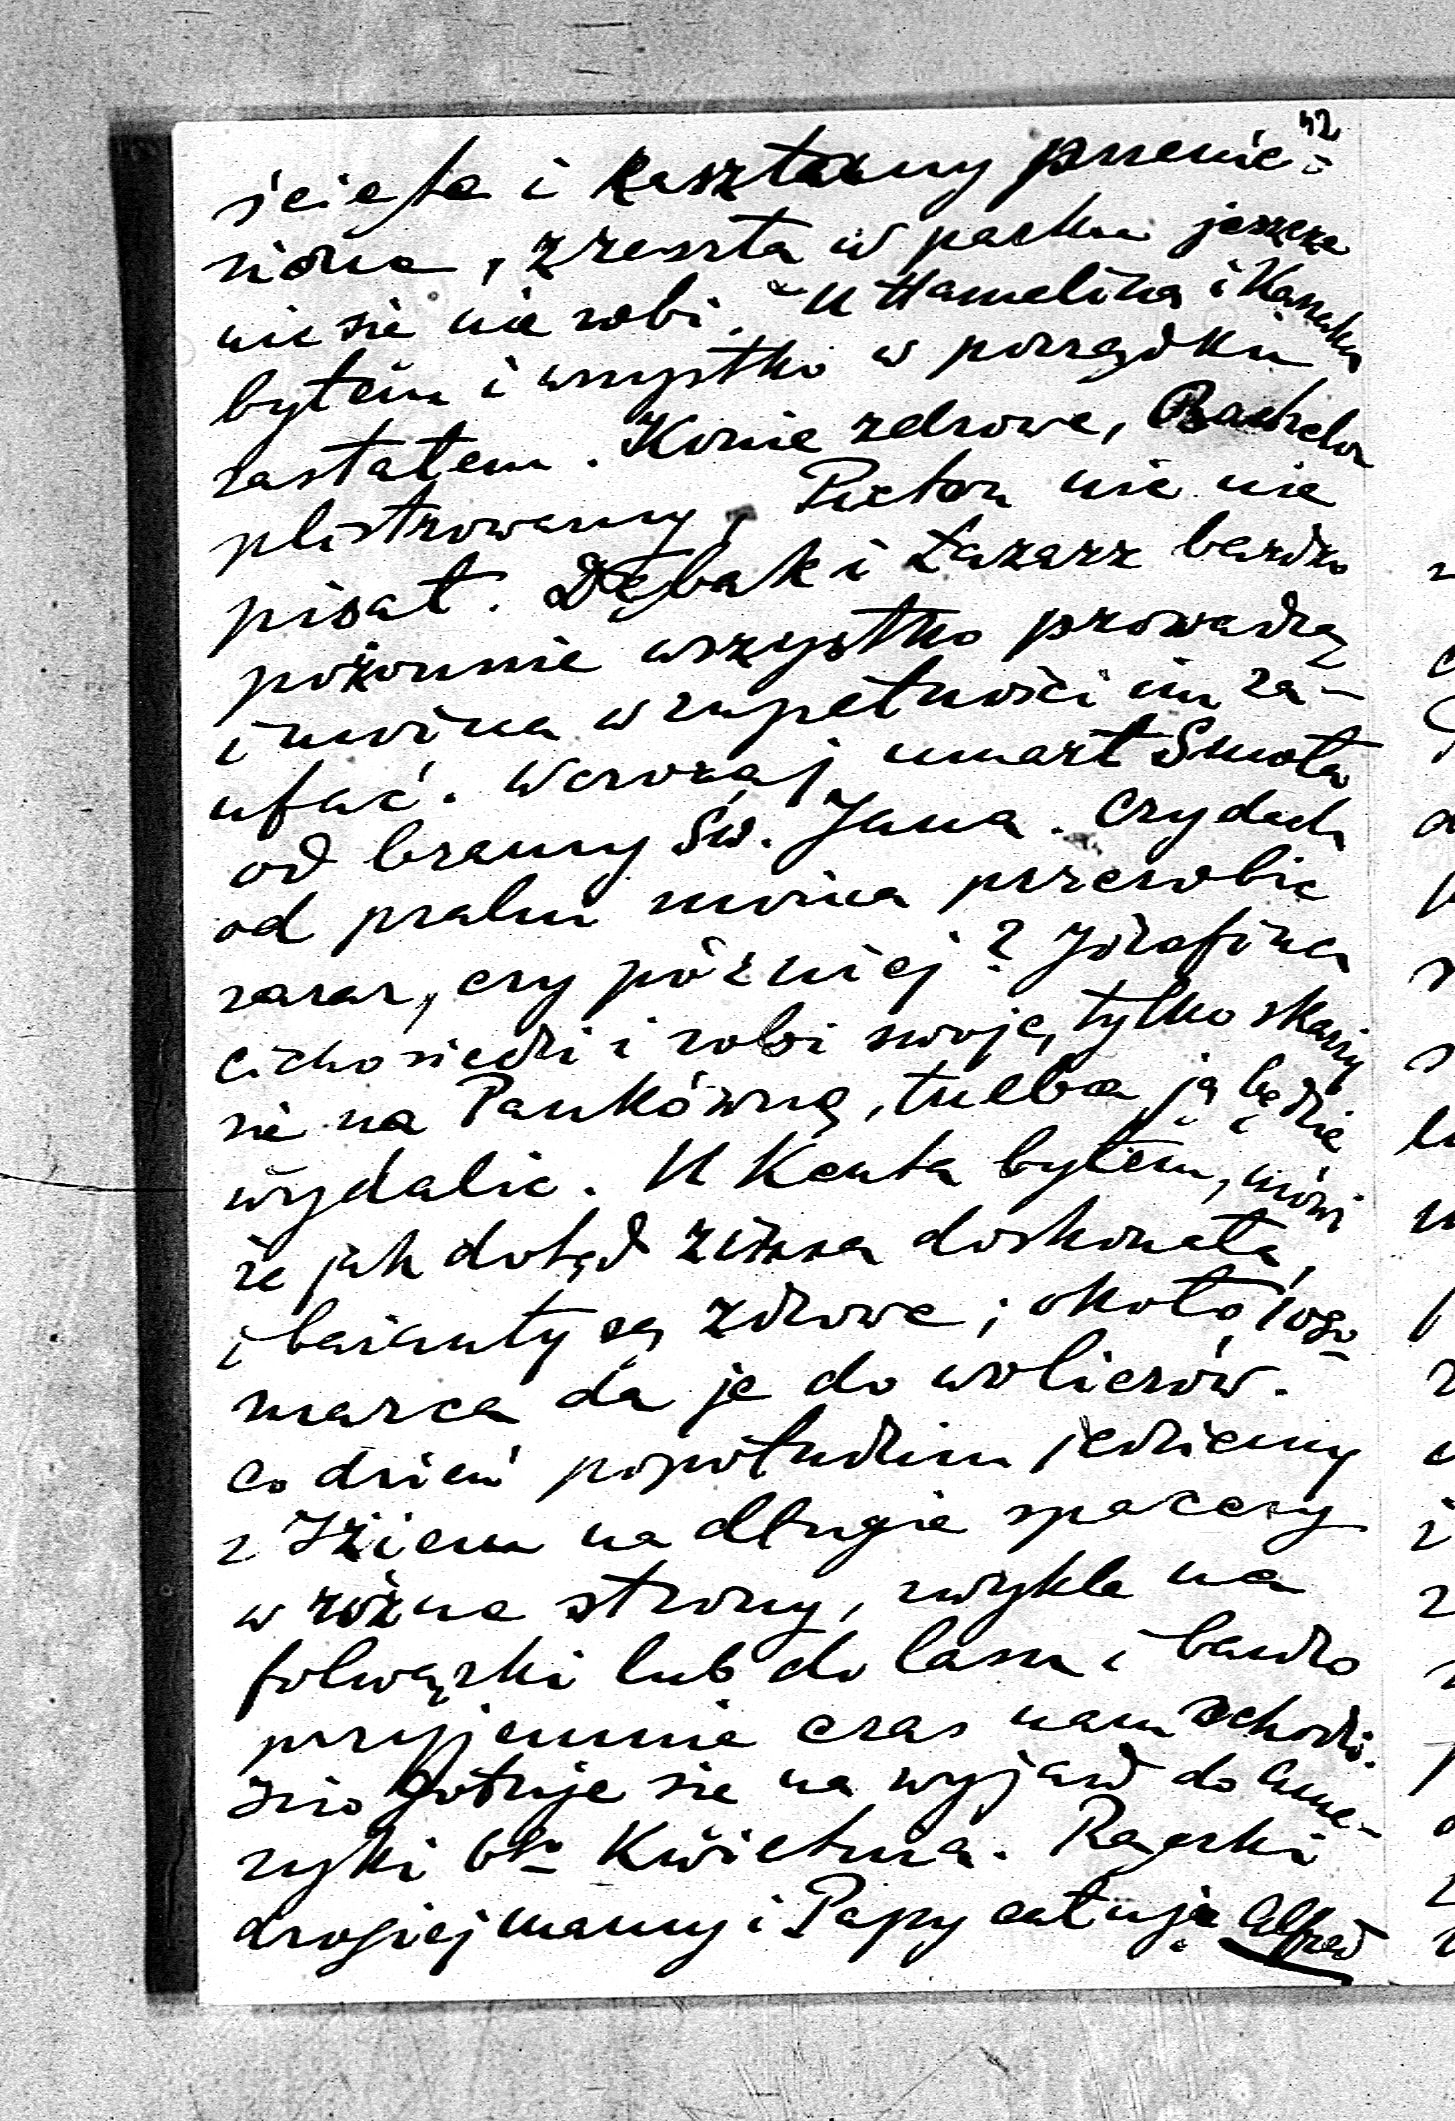 42
ścięta i kasztany przenie=
sione, zresztą w parku jeszcze
nic się nie robi. U Hamelina i
byłem i wszystko w porządku
zastałem. Konie zdrowe,
plistrowany, nic nie
pisał. Dębak i Łazarz bardzo
wszystko prowadzą
i można w zupełności im za-
ufać. Wczoraj umarł Smoła
od bramy Św. Jana. Czy dach
od pralni można przerobić
zaraz, czy później? Józefina
cicho siedzi i robi swoje, tylko skarży
się na Pankównę, trzeba ją będzie
wydalić. U Kenta byłem, mówi
że jak dotąd zima doskonała
i bażanty są zdrowe; około 10go
marca da je do wolierów.
Co dzień popołudniu jedziemy
z Iziem na długie spacery
w różne strony, zwykle na
folwarki lub do lasu i bardzo
przyjemnie czas nam schodzi.
Izio gotuje się na wyjazd do Ame-
ryki 6go Kwietnia. Rączki
drogiej mamy i Papy całuję Alfred